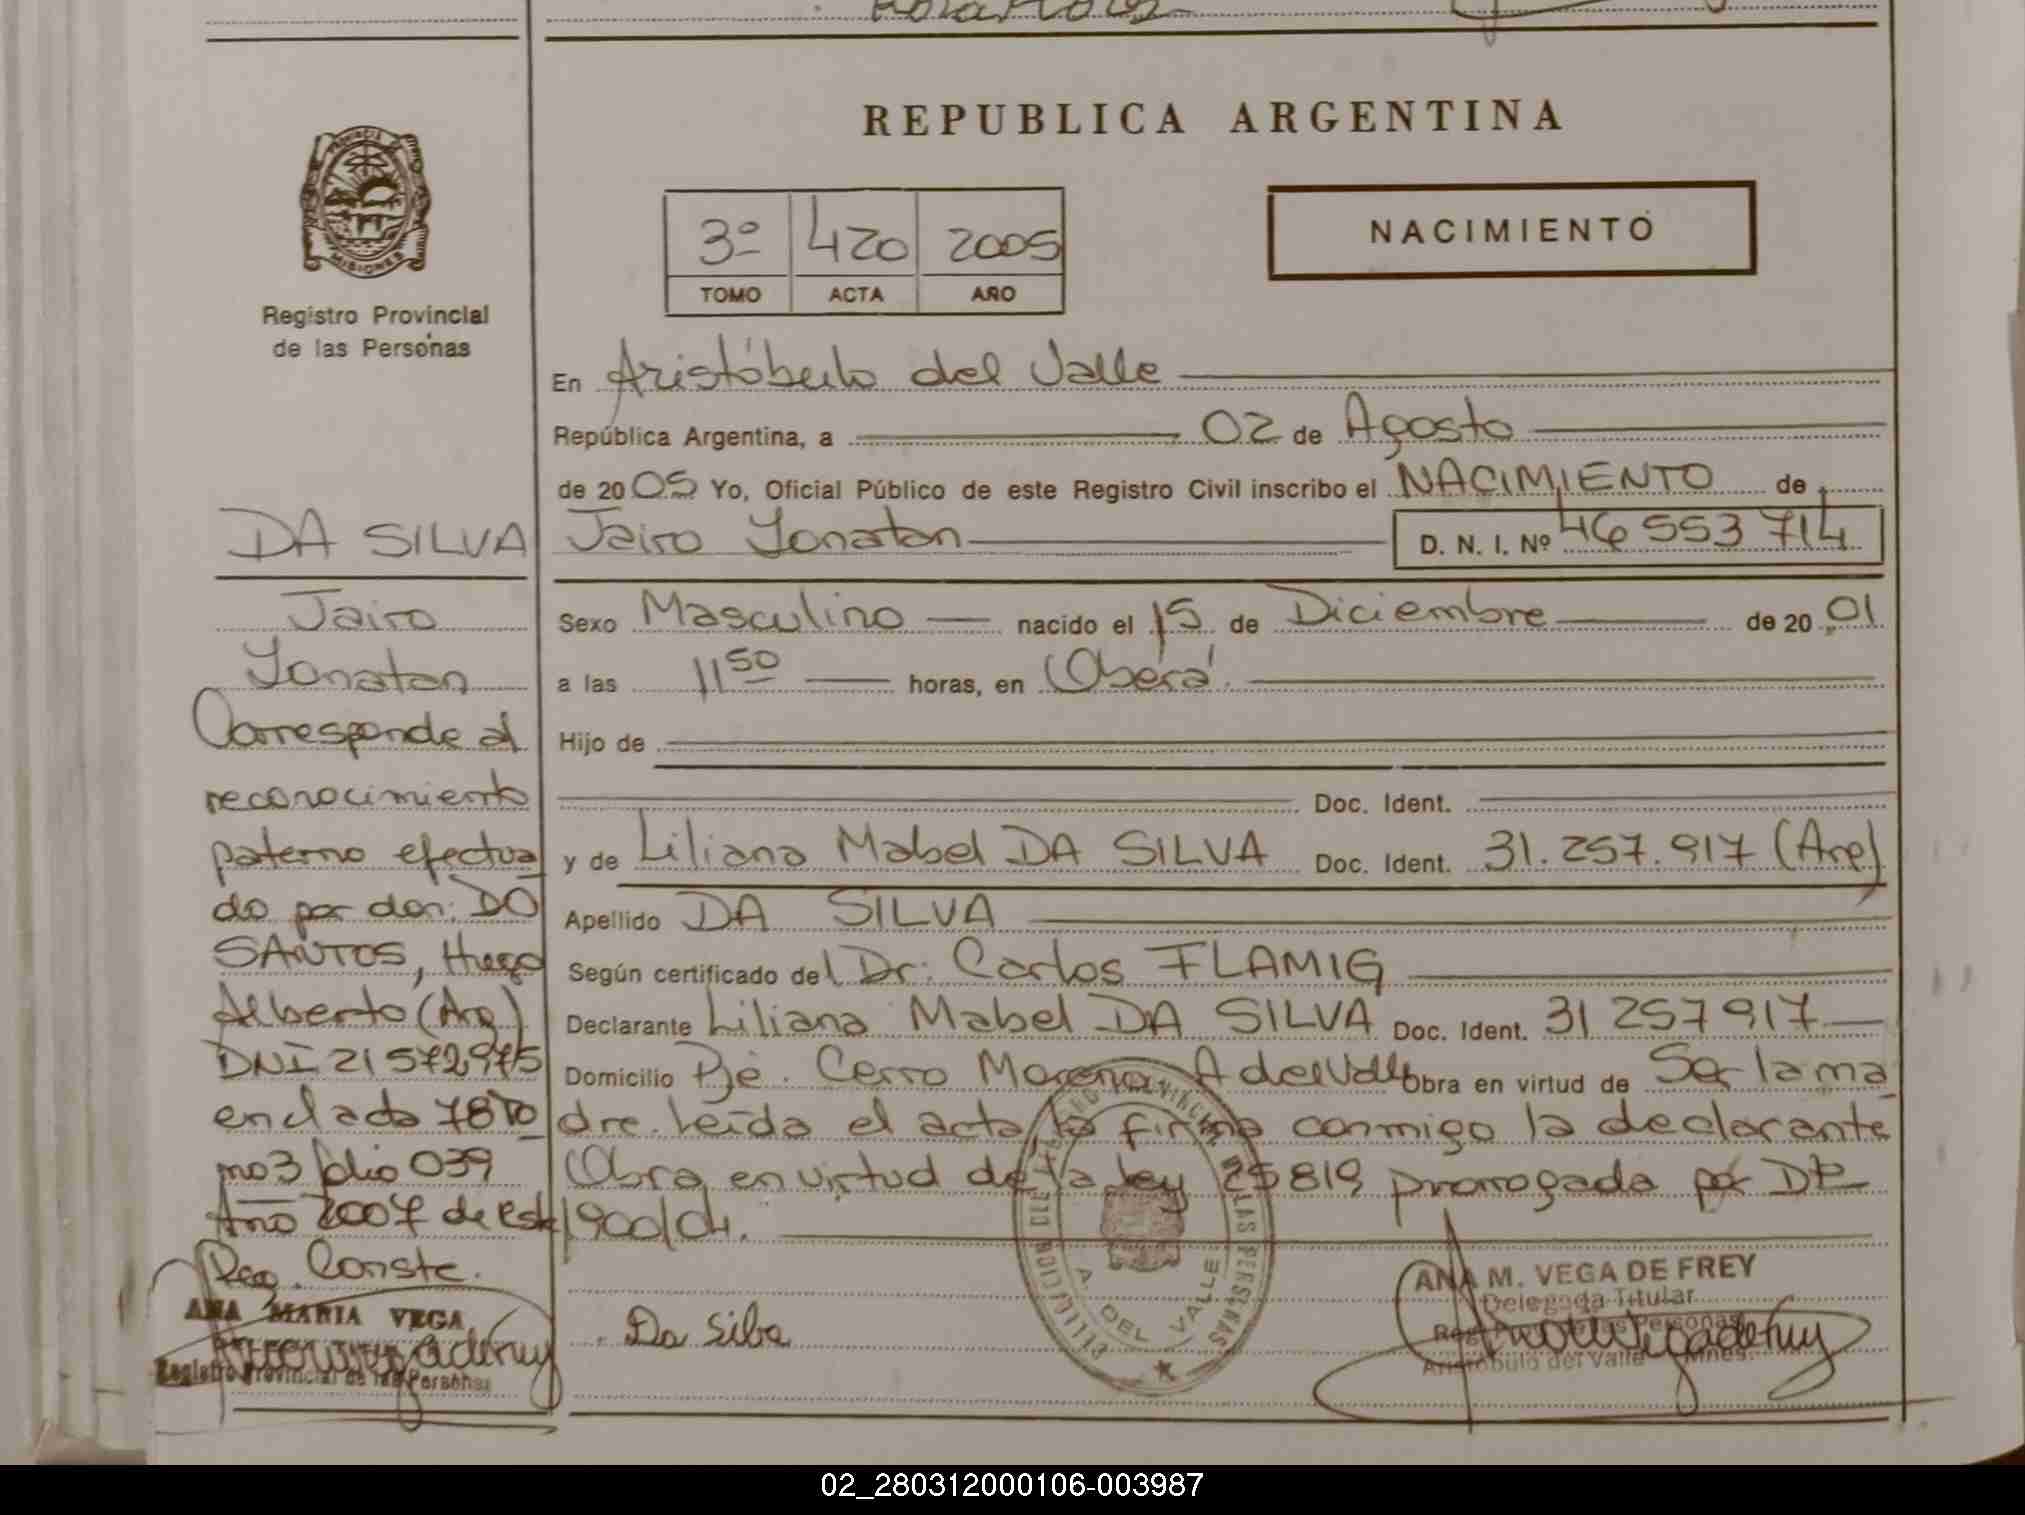 REPUBLICA ARGENTINA
PROVINCIA DE
MISIONES
Registro Provincial
de las Personas
3º 420 2005
TOMO ACTA AÑO
NACIMIENTO
En Aristóbulo del Valle
República Argentina, a 02 de Agosto
de 2005 Yo, Oficial Público de este Registro Civil inscribo el NACIMIENTO de
Jairo Yonatan D. N. I. Nº 46 553 714
Sexo Masculino nacido el 15 de Diciembre de 2001
a las 11 50 horas, en Oberá.
Hijo de
Doc. Ident.
y de Liliana Mabel DA SILVA Doc. Ident. 31.257.917 (Arg)
Apellido DA SILVA
Según certificado del Dr. Carlos FLAMIG
Declarante Liliana Mabel DA SILVA Doc. Ident. 31 257 917
Domicilio Pje. Cerro Moreno, A del Valle Obra en virtud de Ser la ma
dre. Leída el acta, la firma conmigo la declarante
Obra en virtud de la ley 25819 prorrogada por
1900/04.
Da Silba
A. DEL VALLE
ANA M. VEGA DE FREY
Delegada Titular
Aristóbulo del Valle - Mnes.
DA SILVA
Jairo
Yonatan
Corresponde al
reconocimiento
paterno efectua
do por don: DO
SANTOS, Hugo
Alberto (Arg)
DNI 21 572975
en el acta 78 To
mo 3 folio 039
Año 2007 de este
Reg. Conste.
ANA MARIA VEGA
Registro Provincial de las Personas
02_280312000106-003987